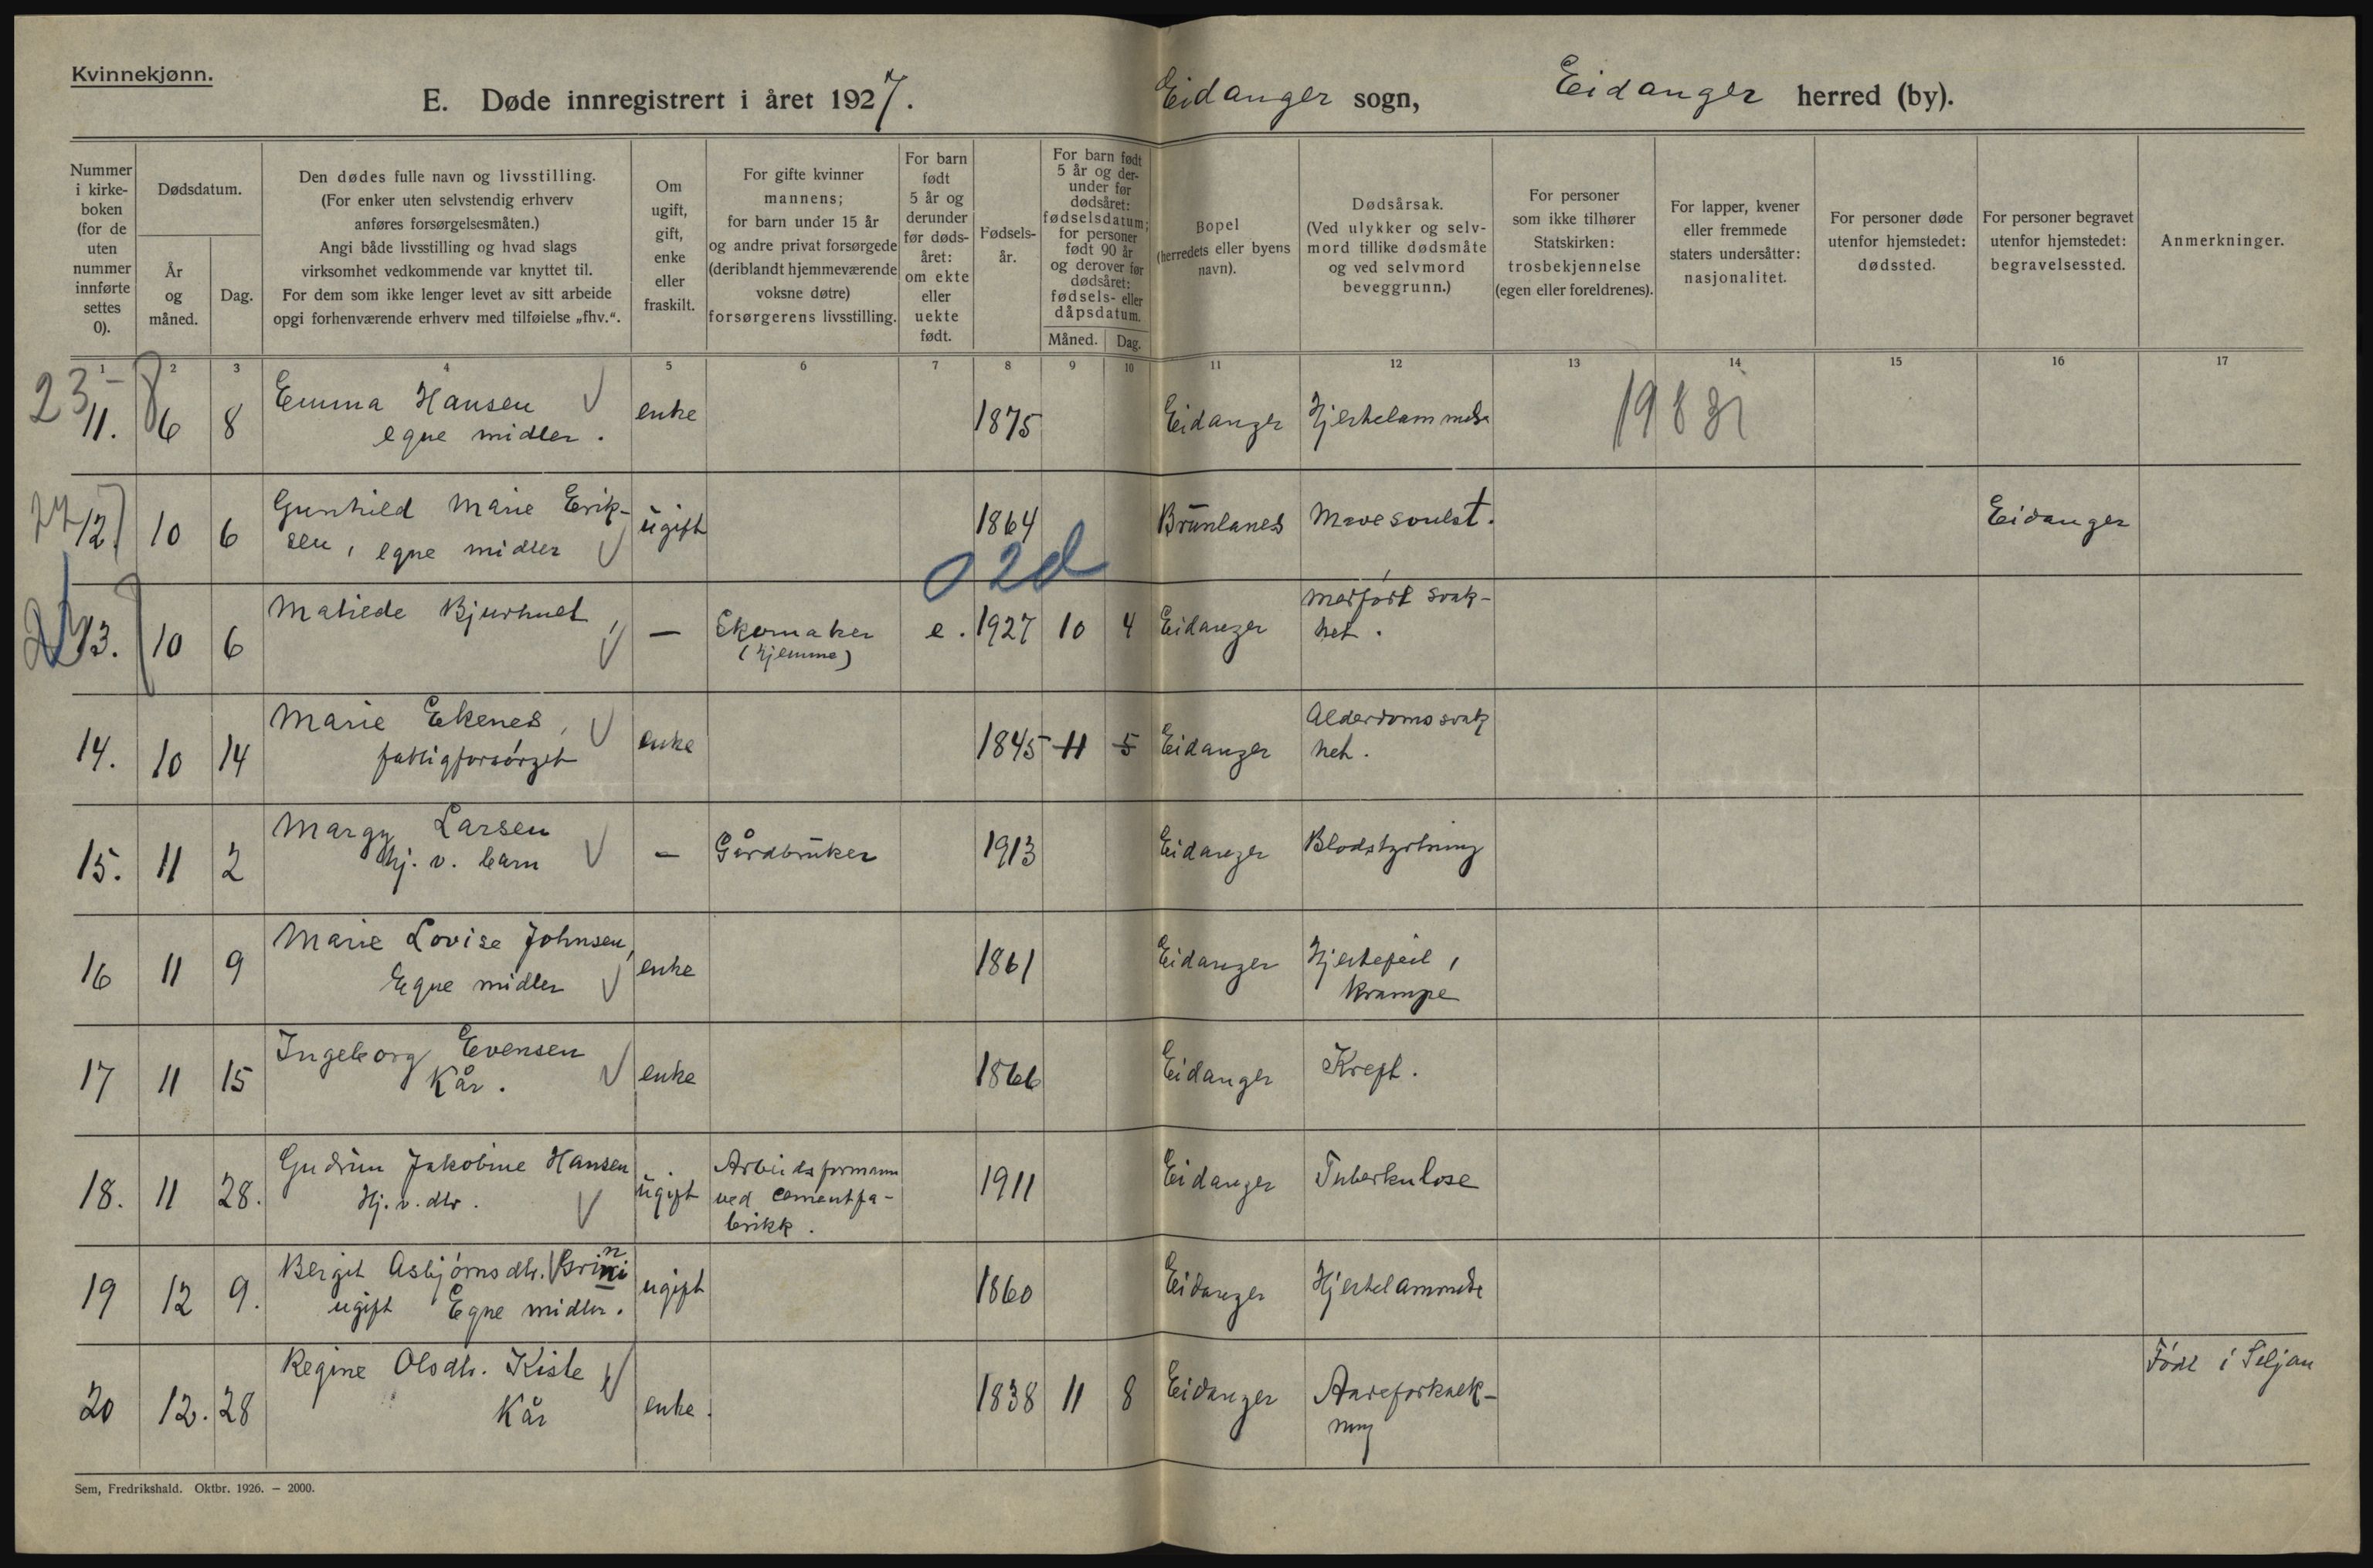 Kvinnekjønn.
E. Døde innregistrert i året 1927.
Eidanger sogn, Eidanger herred (by).
Nummer i kirke-boken (for de uten nummer innførte settes 0).
Dødsdatum.
År og måned.
Dag.
Den dødes fulle navn og livsstilling.
(For enker uten selvstendig erhverv
anføres forsørgelsesmåten.)
Angi både livsstilling og hvad slags
virksomhet vedkommende var knyttet til.
For dem som ikke lenger levet av sitt arbeide
opgi forhenværende erhverv med tilføielse „fhv.“.
Om ugift, gift, enke eller fraskilt.
For gifte kvinner
mannens;
for barn under 15 år
og andre privat forsørgede
(deriblandt hjemmeværende
voksne døtre)
forsørgerens livsstilling.
For barn født 5 år og derunder før døds-året: om ekte eller uekte født.
Fødsels-år.
For barn født 5 år og der-under før dødsåret: fødselsdatum; for personer født 90 år og derover før dødsåret: fødsels- eller dåpsdatum.
Måned. Dag.
Bopel
(herredets eller byens
navn).
Dødsårsak.
(Ved ulykker og selv-
mord tillike dødsmåte
og ved selvmord
beveggrunn.)
For personer
som ikke tilhører
Statskirken:
trosbekjennelse
(egen eller foreldrenes).
For lapper, kvener
eller fremmede
staters undersåtter:
nasjonalitet.
For personer døde
utenfor hjemstedet:
dødssted.
For personer begravet
utenfor hjemstedet:
begravelsessted.
Anmerkninger.
1 2 3 4 5 6 7 8 9 10 11 12 13 14 15 16 17
23
11. 6 8 Emma Hansen egne midler. enke 1875 Eidanger Hjertelammelse
12. 10 6 Gunhild Marie Erik-
sen, egne midler ugift 1864 Brunlanes Mavesvulst. Eidanger
02d
13. 10 6 Matilde Bjurhult, — Skomaker (hjemme) e. 1927 10 4 Eidanger Medfødt svak-
het.
14. 10 14 Marie Ekenes,
fattigforsørget enke 1845 11 5 Eidanger Alderdomssvak
het.
15. 11 2 Margy Larsen
hj. v. barn — Gårdbruker 1913 Eidanger Blodstyrtning
16 11 9 Marie Lovise Johnsen,
Egne midler enke 1861 Eidanger Hjertefeil,
krampe
17 11 15 Ingeborg Evensen
Kår. enke 1866 Eidanger Kreft.
18. 11 28. Gudrun Jakobine Hansen
Hj. v. dtr. ugift Arbeidsformann
ved cementfa-
brikk. 1911 Eidanger Tuberkulose
19 12 9. Bergit Asbjørnsdtr. Grini
ugift Egne midler. ugift 1860 Eidanger Hjertelammelse
20 12. 28 Regine Olsdtr. Kisle
Kår enke. 1838 11 8 Eidanger Aareforkalk-
ning Født i Seljord
Sem, Fredrikshald. Oktbr. 1926. – 2000.